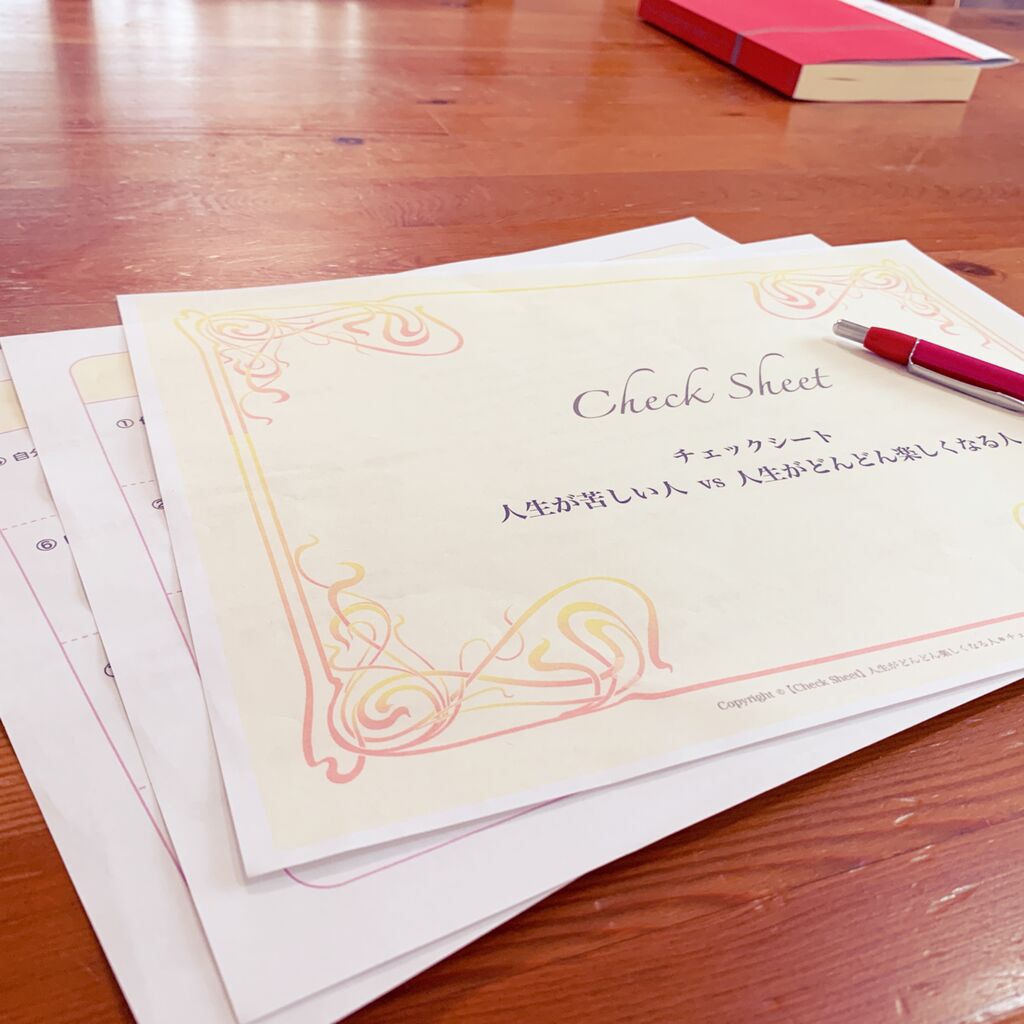 Check Sheet
チェックシート
人生が苦しい人 vs 人生がどんどん楽しくなる人
Copyright © 【Check Sheet】人生がどんどん楽しくなる人*チェ
①
②
自分
⑥